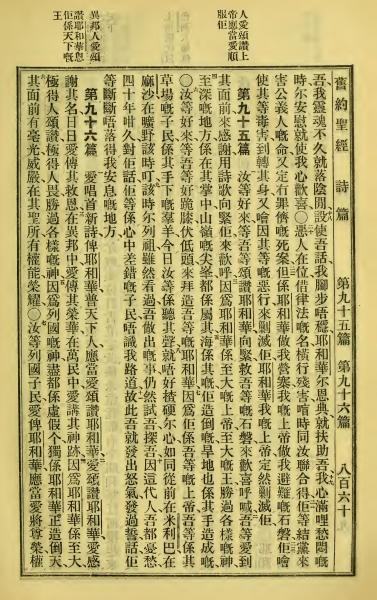 舊約聖經 詩篇 第九十五篇 第九十六篇 八百六十
吾我靈魂不久就落陰間設使吾話我腳步唔穩耶和華尔恩典就扶助吾我心滿哩愁悶嘅
時尔安慰就使我心歡喜○惡人在位借律法嘅名橫行殘害唔時同汝聯合得佢等結黨來
害公義人嘅命又定有罪債嘅死案但係耶和華做我營寨我上帝做我避難嘅石磐佢噲
使其等毒害到轉其身又噲因其等嘅惡行來剿滅佢耶和華我嘅上帝定然剿滅佢
人愛頌讚上
帝應當愛順
服佢
第九十五篇 汝等好來等吾等頌讚耶和華向緊救吾等嘅石磐來歡喜呼喊吾等愛到
其面前來感謝用詩歌向緊佢來歡呼因爲耶和華係至大上帝至大王勝過各樣嘅神
至深嘅地方係在其掌中山嶺嘅尖峯都係屬其海係其嘅佢造倒嘅旱地也係其手造成嘅
○汝等好來等吾等好跪膝伏低頭來拜造吾等嘅耶和華因爲佢係吾等嘅上帝吾等係其
草場嘅子民係其手下嘅羣羊今日汝等係聽其聲就唔好揸硬尔心如同從前在米利巴在
麻沙在曠野該時吖該時尔列祖雖然看過吾做出嘅事仍然試吾探吾因這代人吾都憂愁
四十年咁久對佢話佢等係心中差錯嘅子民唔識我路道故此吾就發出怒氣發過誓話佢
等斷斷唔落得我安息嘅地方
異邦人愛頌
讚耶和華恩
佢係天下嘅
王
第九十六篇 愛唱首新詩俾耶和華普天下人應當愛頌讚耶和華愛頌讚耶和華愛感
謝其名日日愛傳其救恩在異邦中愛傳其榮華在萬民中愛講其神跡因爲耶和華係至大
極得人頌讚極得人畏勝過各樣嘅神因爲列國嘅神盡都係虛假個獨係耶和華正造倒天
其面前有毫光威嚴在其聖所有權能榮耀○汝等列國子民愛俾耶和華應當愛將尊榮權